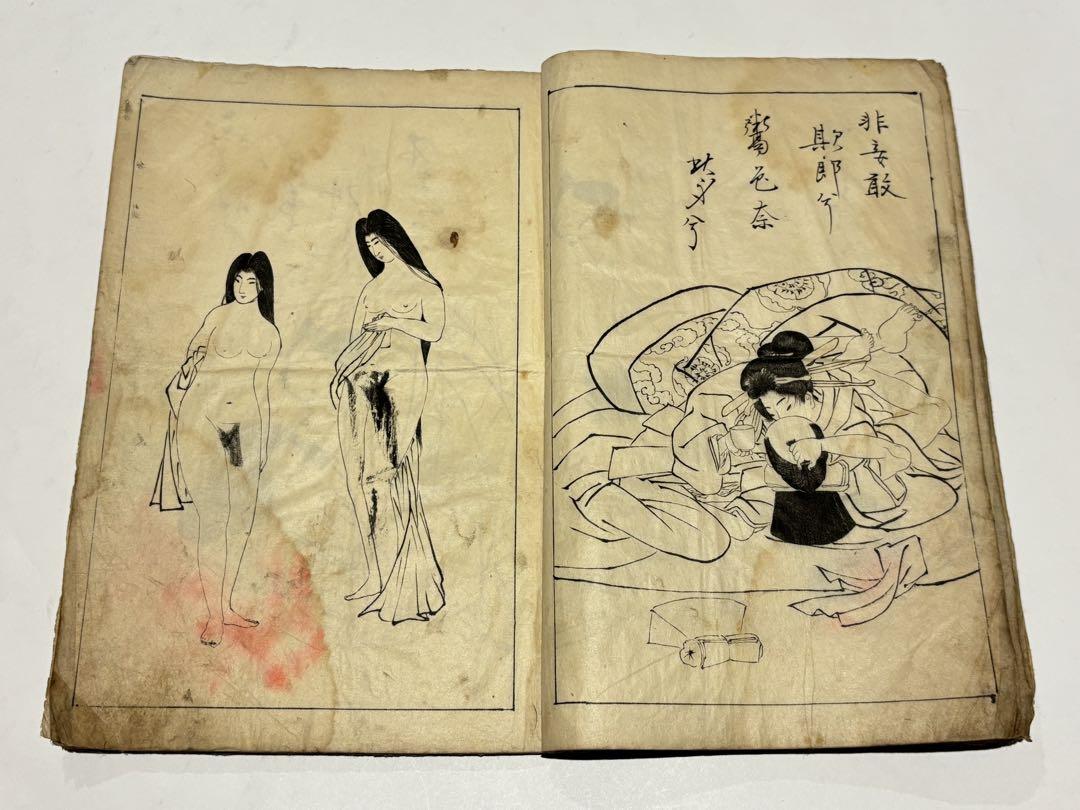 非妾敢
欺郎兮
鬻色奈
其身兮